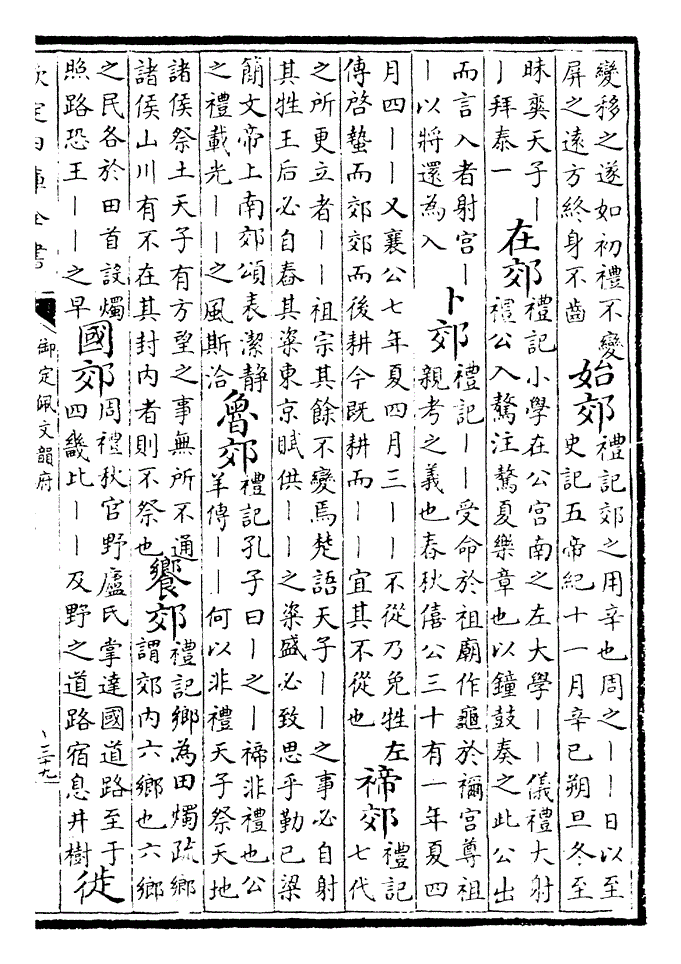 變移之遂如初禮不變
屏之遠方終身不齒
始郊
禮記郊之用辛也周之丨丨日以至
史記五帝紀十一月辛已朔旦冬至
昧爽天子丨
丨拜泰一
在郊
禮記小學在公宮南之左大學丨丨儀禮大射
禮公入驁注驁夏樂章也以鐘鼓奏之此公出
而言入者射宮丨
丨以將還為入
卜郊
禮記丨丨受命於祖廟作龜於禰宮尊祖
親考之義也春秋僖公三十有一年夏四
月四丨丨又襄公七年夏四月三丨丨不從乃免牲左
傳啓蟄而郊郊而後耕今既耕而丨丨宜其不從也
禘郊
禮記
七代
之所更立者丨丨祖宗其餘不變焉楚語天子丨丨之事必自射
其牲王后必自舂其粢東京賦供丨丨之粢盛必致思乎勤已梁
簡文帝上南郊頌表潔静
之禮載光丨丨之風斯洽
魯郊
禮記孔子曰丨之丨禘非禮也公
羊傳丨丨何以非禮天子祭天地
諸侯祭土天子有方望之事無所不通
諸侯山川有不在其封内者則不祭也
饗郊
禮記鄉為田燭疏鄉
謂郊内六鄉也六鄉
之民各於田首設燭
照路恐王丨丨之早
國郊
周禮秋官野廬氏掌達國道路至于
四畿比丨丨及野之道路宿息井樹
徙
欽定四庫全書
御定佩文韻府
三十九